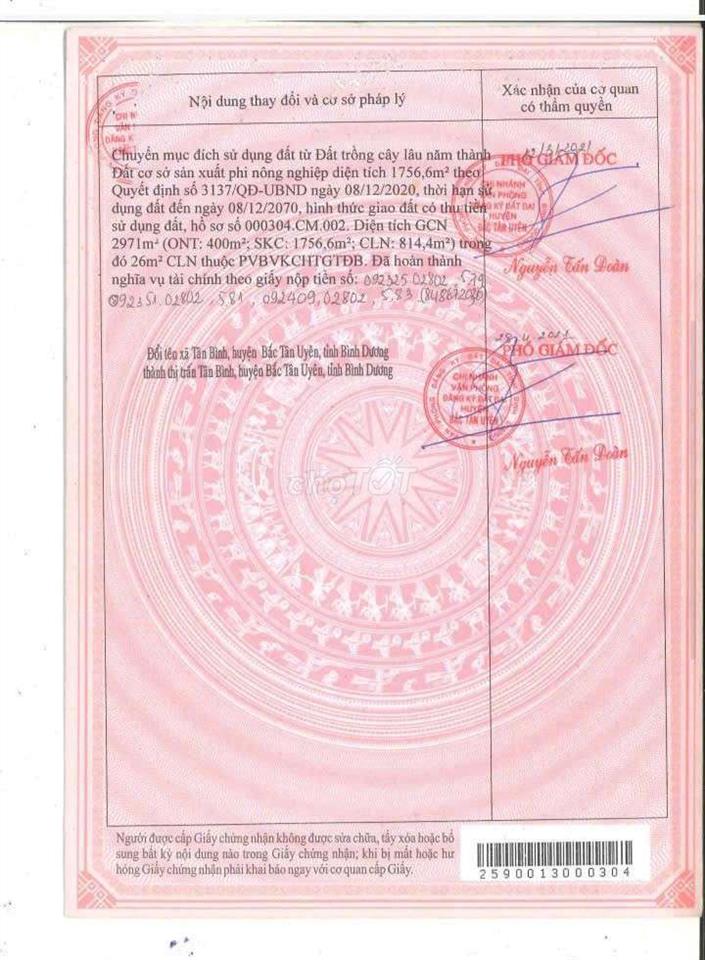 Nội dung thay đổi và cơ sở pháp lý
Xác nhận của cơ quan
có thẩm quyền
Chuyển mục đích sử dụng đất từ Đất trồng cây lâu năm thành
Đất cơ sở sản xuất phi nông nghiệp diện tích 1756,6m² theo
Quyết định số 3137/QĐ-UBND ngày 08/12/2020, thời hạn sử
dụng đất đến ngày 08/12/2070, hình thức giao đất có thu tiền
sử dụng đất, hồ sơ số 000304.CM.002. Diện tích GCN
2971m² (ONT: 400m²; SKC: 1756,6m²; CLN: 814,4m²) trong
đó 26m² CLN thuộc PVBVKCHTGTĐB. Đã hoàn thành
nghĩa vụ tài chính theo giấy nộp tiền số: 092325.02802, 579
092351.02802, 581, 092409.02802, 583
PHÓ GIÁM ĐỐC
CHI NHÁNH
VĂN PHÒNG
ĐĂNG KÝ ĐẤT ĐAI
HUYỆN
BẮC TÂN UYÊN
Nguyễn Tấn Đoàn
Đổi tên xã Tân Bình, huyện Bắc Tân Uyên, tỉnh Bình Dương
thành thị trấn Tân Bình, huyện Bắc Tân Uyên, tỉnh Bình Dương
PHÓ GIÁM ĐỐC
CHI NHÁNH
VĂN PHÒNG
ĐĂNG KÝ ĐẤT ĐAI
HUYỆN
BẮC TÂN UYÊN
Nguyễn Tấn Đoàn
choTỐT
Người được cấp Giấy chứng nhận không được sửa chữa, tẩy xóa hoặc bổ
sung bất kỳ nội dung nào trong Giấy chứng nhận; khi bị mất hoặc hư
hỏng Giấy chứng nhận phải khai báo ngay với cơ quan cấp Giấy.
2590013000304